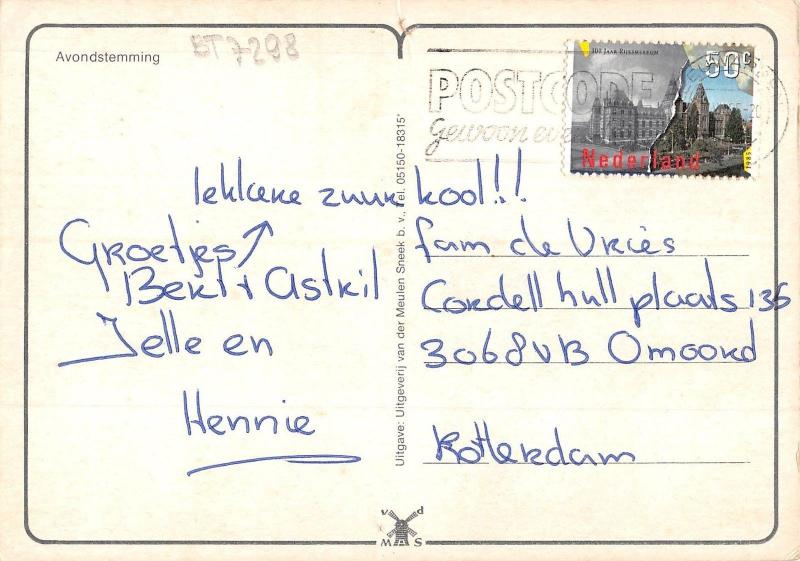 BT7298
Avondstemming
POSTCODE
Gewoon even
100 JAAR RIJKSMUSEUM
50c
Nederland
1985
lekkere zuurkool!!
Groetjes
Bert + Astrid
Jelle en
Hennie
Uitgave: Uitgeverij van der Meulen Sneek b.v., Tel. 05150-18315*
fam de Vriès
Cordell hull plaats 136
3068VB Omoord
Rotterdam
v d
M S